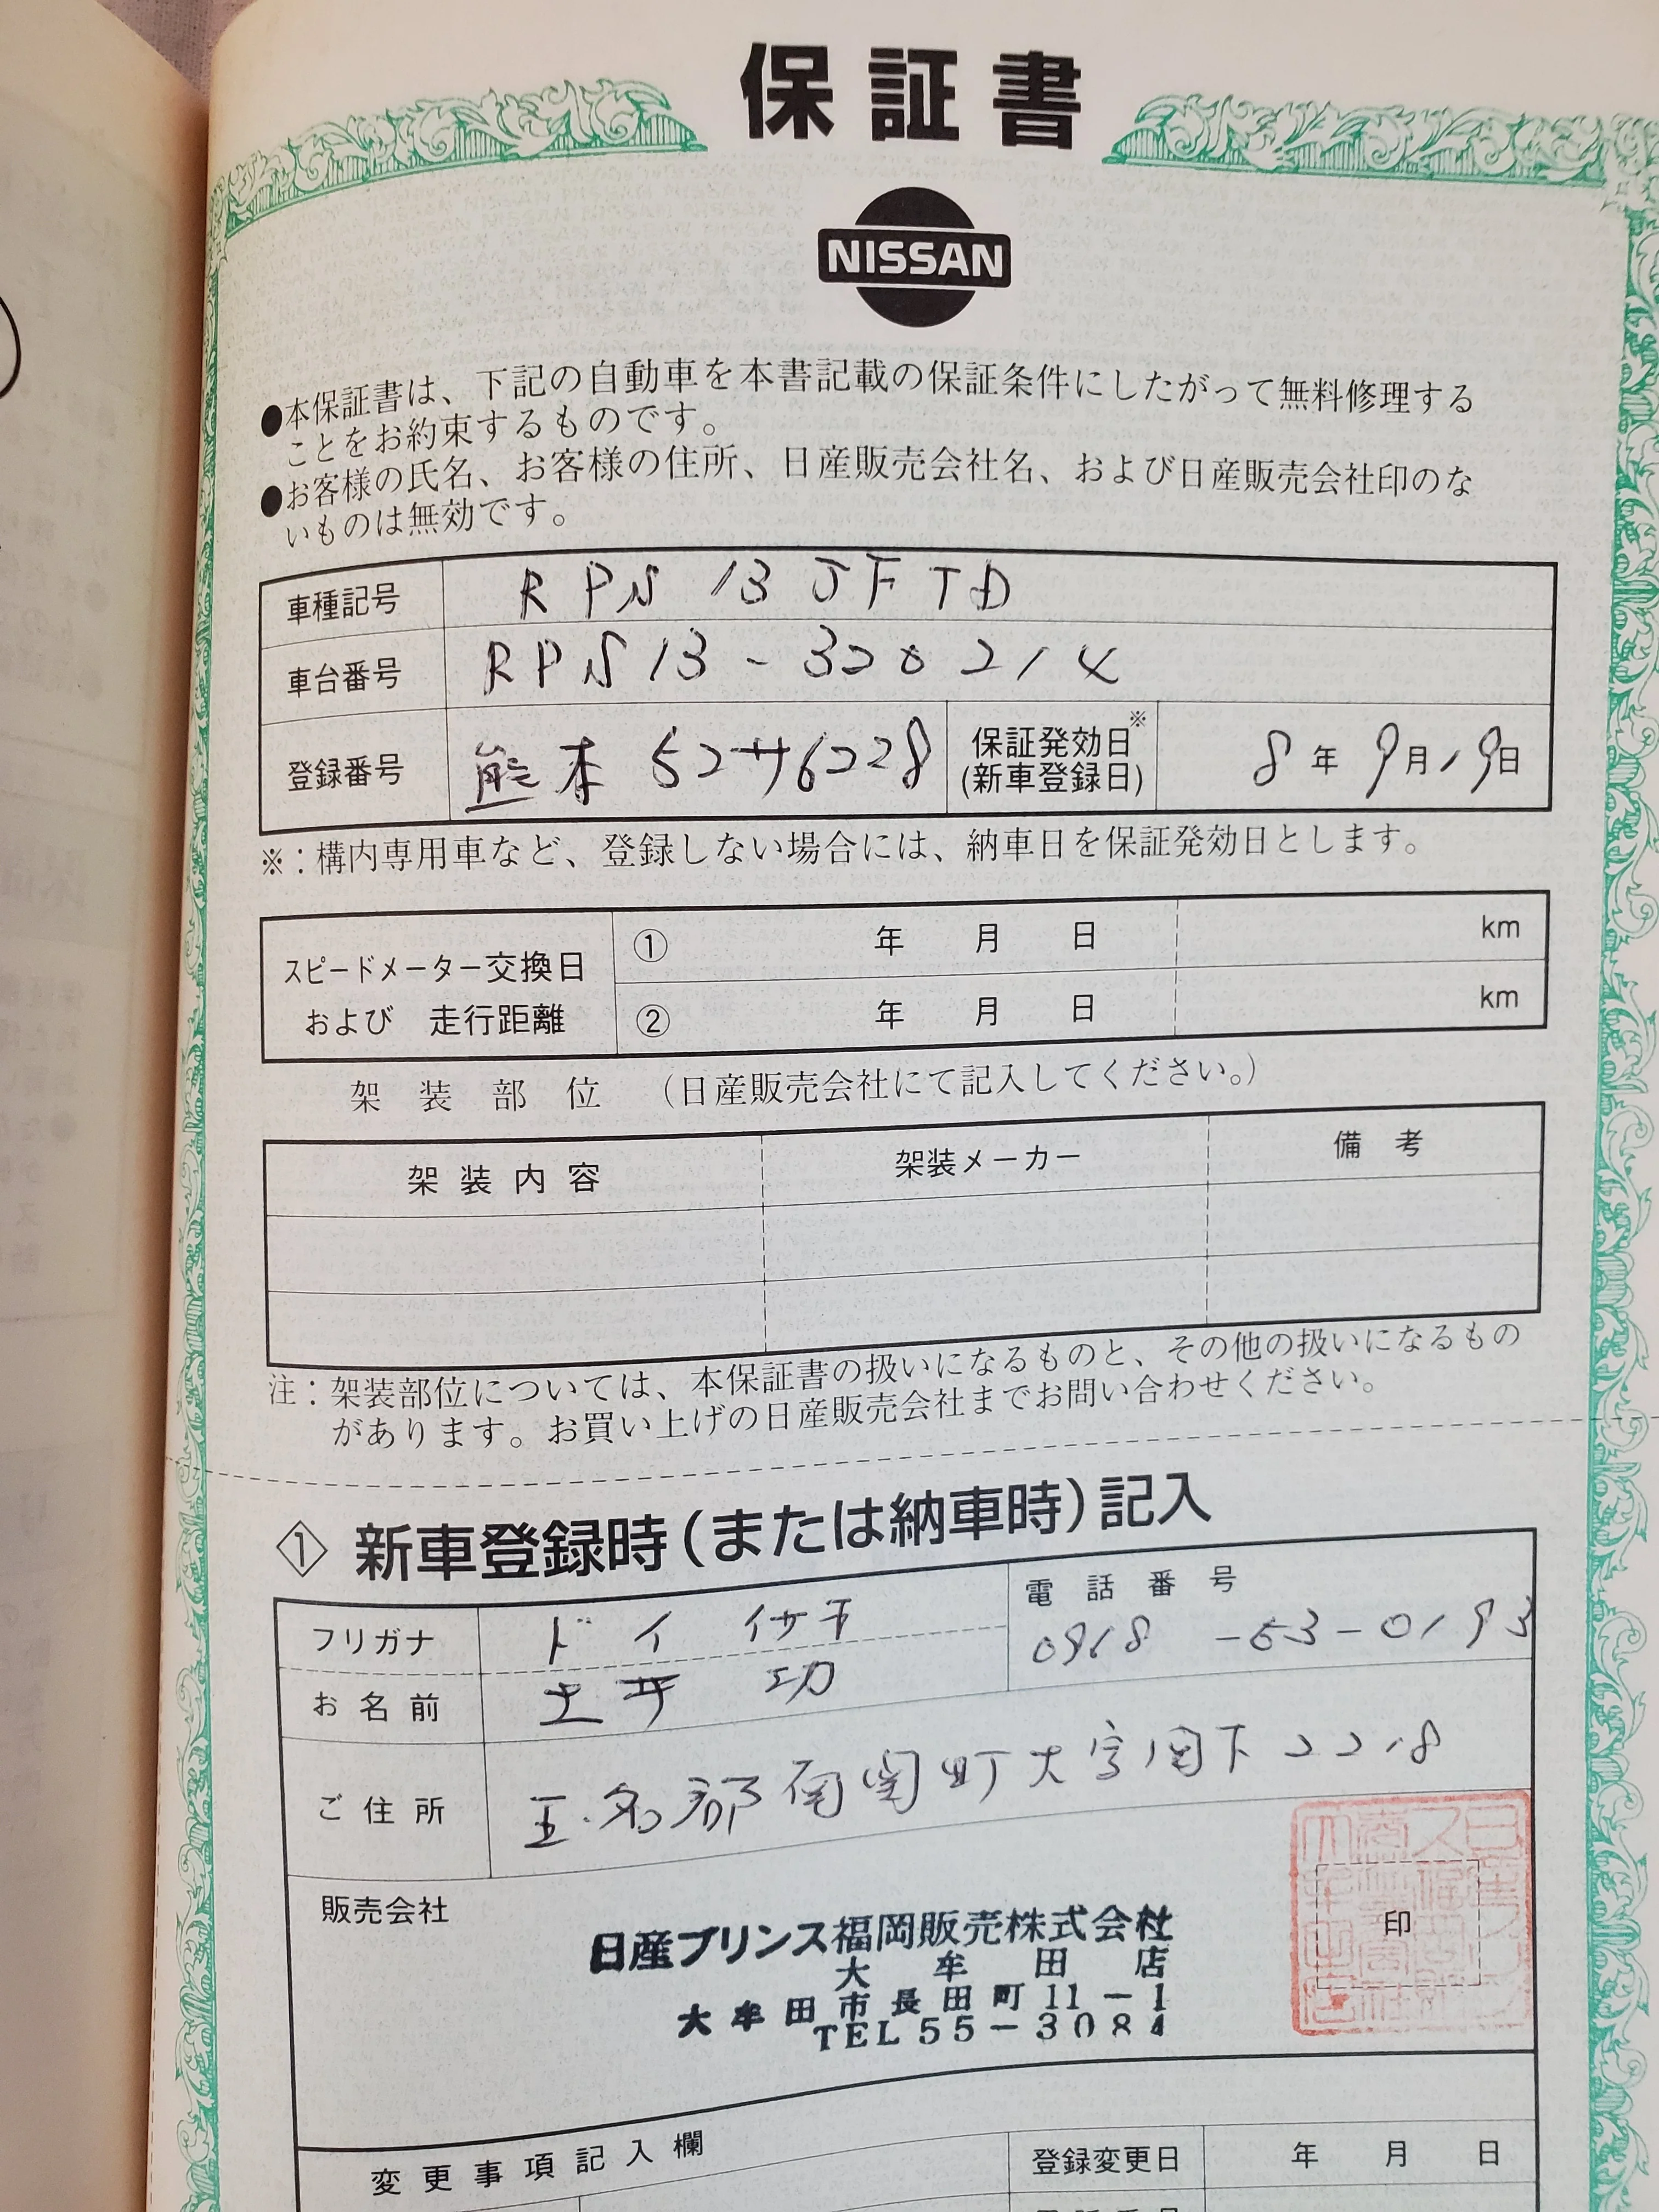 保証書
NISSAN
●本保証書は、下記の自動車を本書記載の保証条件にしたがって無料修理する
ことをお約束するものです。
●お客様の氏名、お客様の住所、日産販売会社名、および日産販売会社印のな
いものは無効です。
車種記号 RPS13JFTD
車台番号 RPS13-320214
登録番号 熊本 52サ6228 保証発効日※ (新車登録日) 8年9月19日
※：構内専用車など、登録しない場合には、納車日を保証発効日とします。
スピードメーター交換日
および 走行距離
① 年 月 日 km
② 年 月 日 km
架装部位 （日産販売会社にて記入してください。）
架装内容 架装メーカー 備考
注：架装部位については、本保証書の扱いになるものと、その他の扱いになるもの
があります。お買い上げの日産販売会社までお問い合わせください。
① 新車登録時（または納車時）記入
フリガナ ドイ イサヲ
電話番号 0968-53-0193
お名前 土井 功
ご住所 玉名郡南関町大字関下2218
販売会社
日産プリンス福岡販売株式会社
大牟田店
大牟田市長田町11-1
TEL55-3084
印
変更事項記入欄 登録変更日 年 月 日